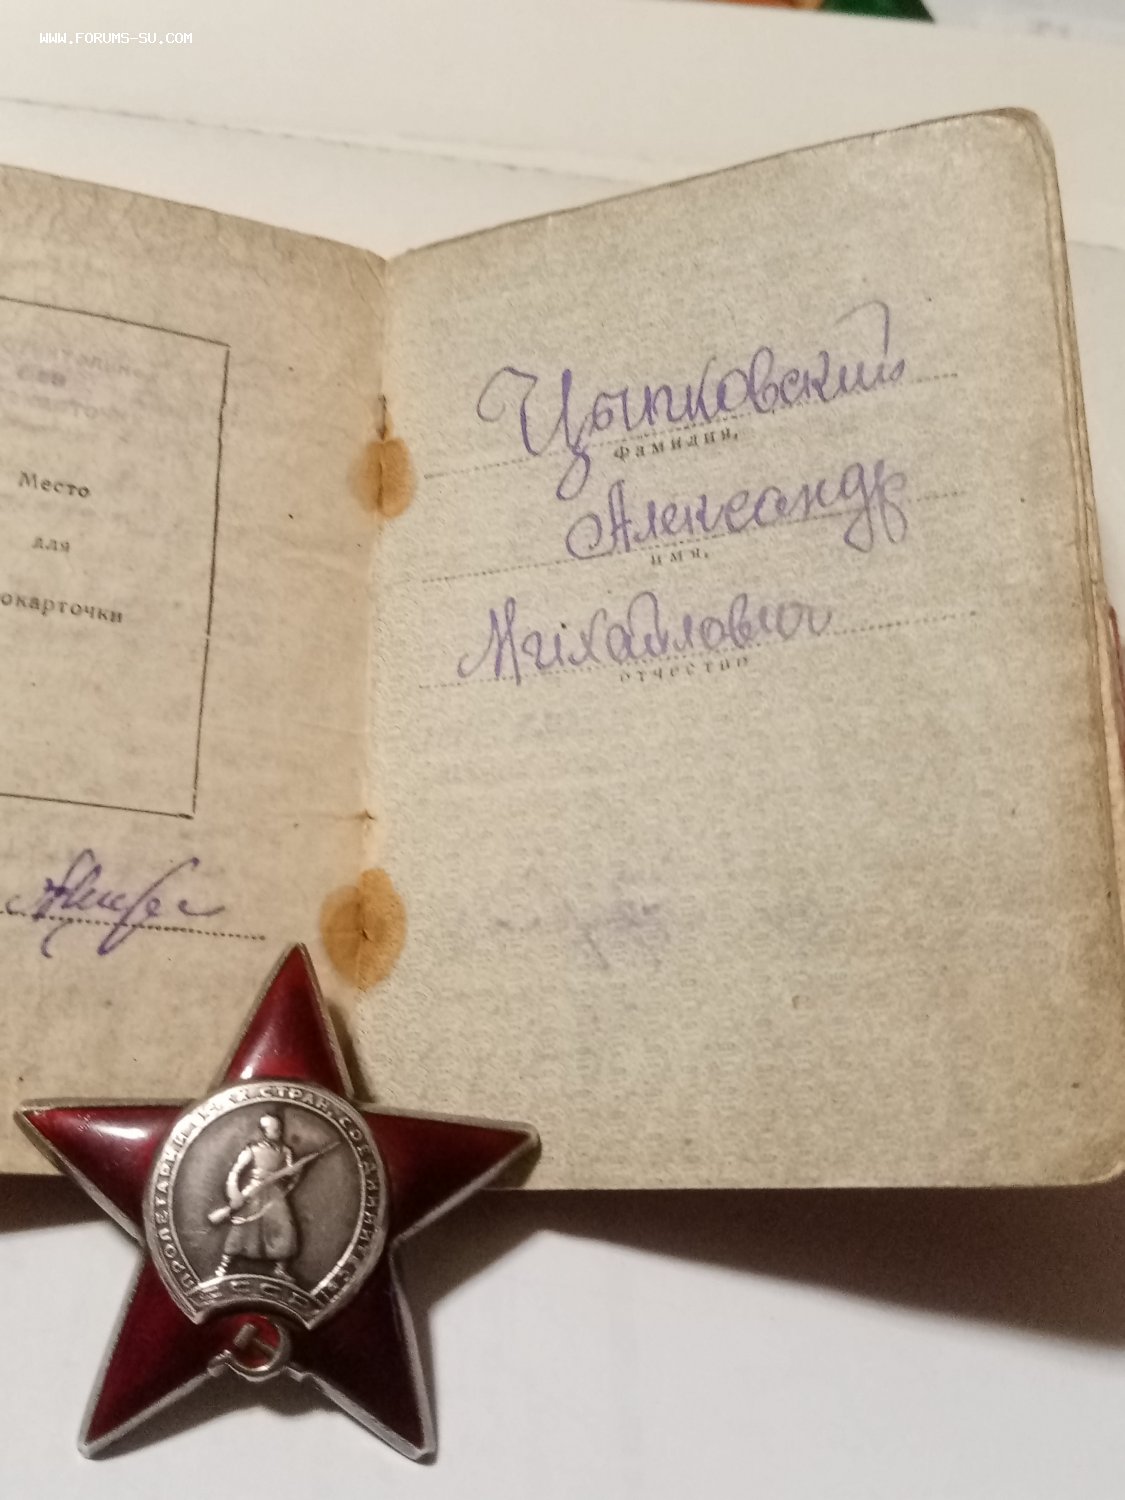 WWW.FORUMS-SU.COM
Место
для
окарточки
Цыпковский
фамилия,
Александр
имя,
Михайлович
отчество
ПРОЛЕТАРИИ ВСЕХ СТРАН, СОЕДИНЯЙТЕСЬ
СССР